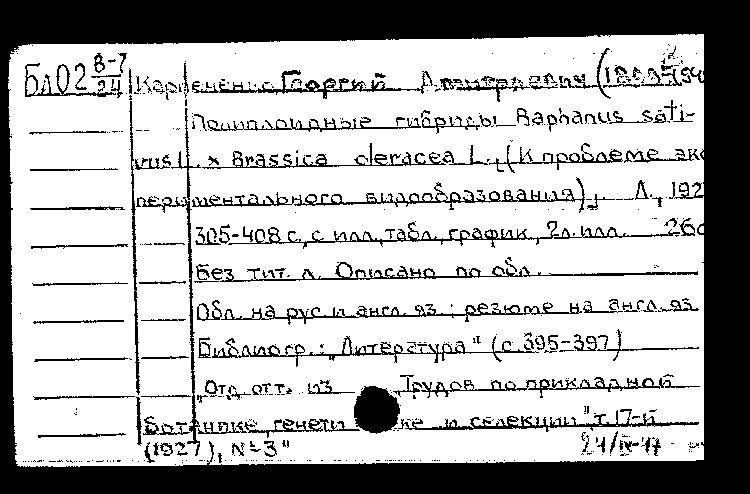 Бл02 8-7/24
Карпеченко Георгий Дмитриевич (1899-194
Полиплоидные гибриды Raphanus sati-
vus L. × Brassica oleracea L., (К проблеме экс
периментального видообразования), Л., 192
305-408 с, с илл, табл, график, 2л. илл. 26с
Без тит. л. Описано по обл.
Обл. на рус и англ. яз.; резюме на англ. яз
Библиогр.: "Литература" (с. 395-397)
"Отд. отт. из Трудов по прикладной
Ботанике, генетике и селекции" т. 17-й
(1927), №3"
24/IV-47